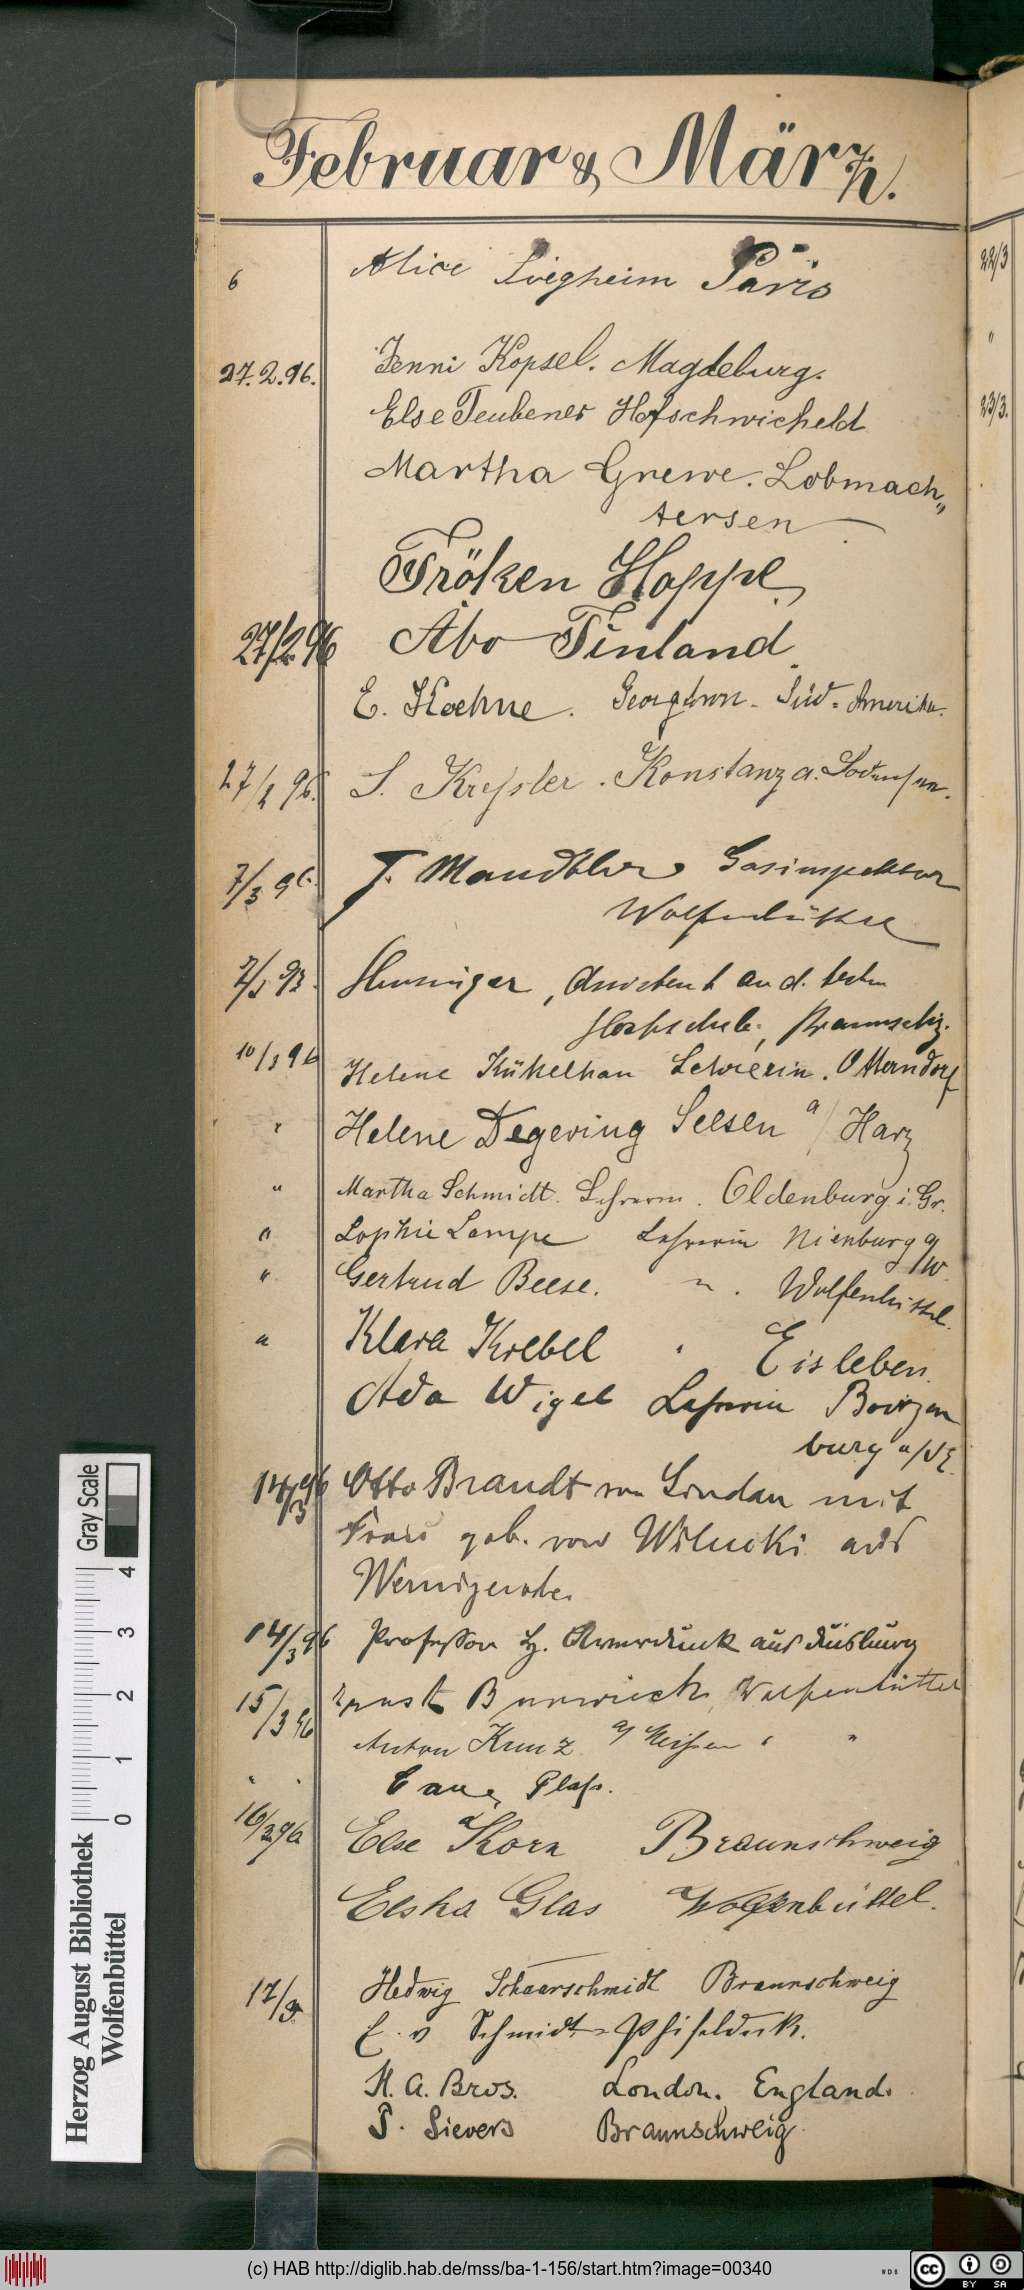 Februar & März.
6 Alice Siegheim Paris
27.2.96. Jenni Kopsel. Magdeburg.
Else Teubener Hofschwicheldt
Martha Grewe. Lobmach„
tersen
Fröken Hoppe,
27/2 96 Åbo Finland.
E. Koehne. Georgtown - Süd-Amerika.
27/2 96. S. Kressler. Konstanz a. Bodensee.
7/3 96. J. Mandtler Gasinspektor
Wolfenbüttel
Heusinger, Assistent an d. techn
Hochschule, Braunschwg.
10/3 96 Helene Kükelhan Lehrerin. Otterndorf
" Helene Degering Seesen a/Harz
" Martha Schmidt. Lehrerin. Oldenburg i. Gr.
" Sophie Lampe Lehrerin Nienburg a/W.
" Gertrud Beese. " . Wolfenbüttel.
" Klara Krebel " Eisleben.
Ada Wigel Lehrerin Boizen
burg a/d E.
14/3 96 Otto Brandt von Lindau mit
Frau geb. von Wilucki aus
Wernigerode.
14/3 96 Professor H. Averdunk aus Duisburg
15/3 96 Ernst Wolfenbüttel
Anton Kunz a/ Meißen " "
Plass.
16/3 96 Else Korn Braunschweig
Elska Glas Wolfenbüttel.
17/3 Hedwig Schaarschmidt Braunschweig
E. v Schmidt-Phiseldeck.
H. A. Bros. London. England.
S. Sievers Braunschweig.
22/3
"
23/3.
Gray Scale
0 1 2 3 4
Herzog August Bibliothek
Wolfenbüttel
(c) HAB http://diglib.hab.de/mss/ba-1-156/start.htm?image=00340
WDB
CC BY SA